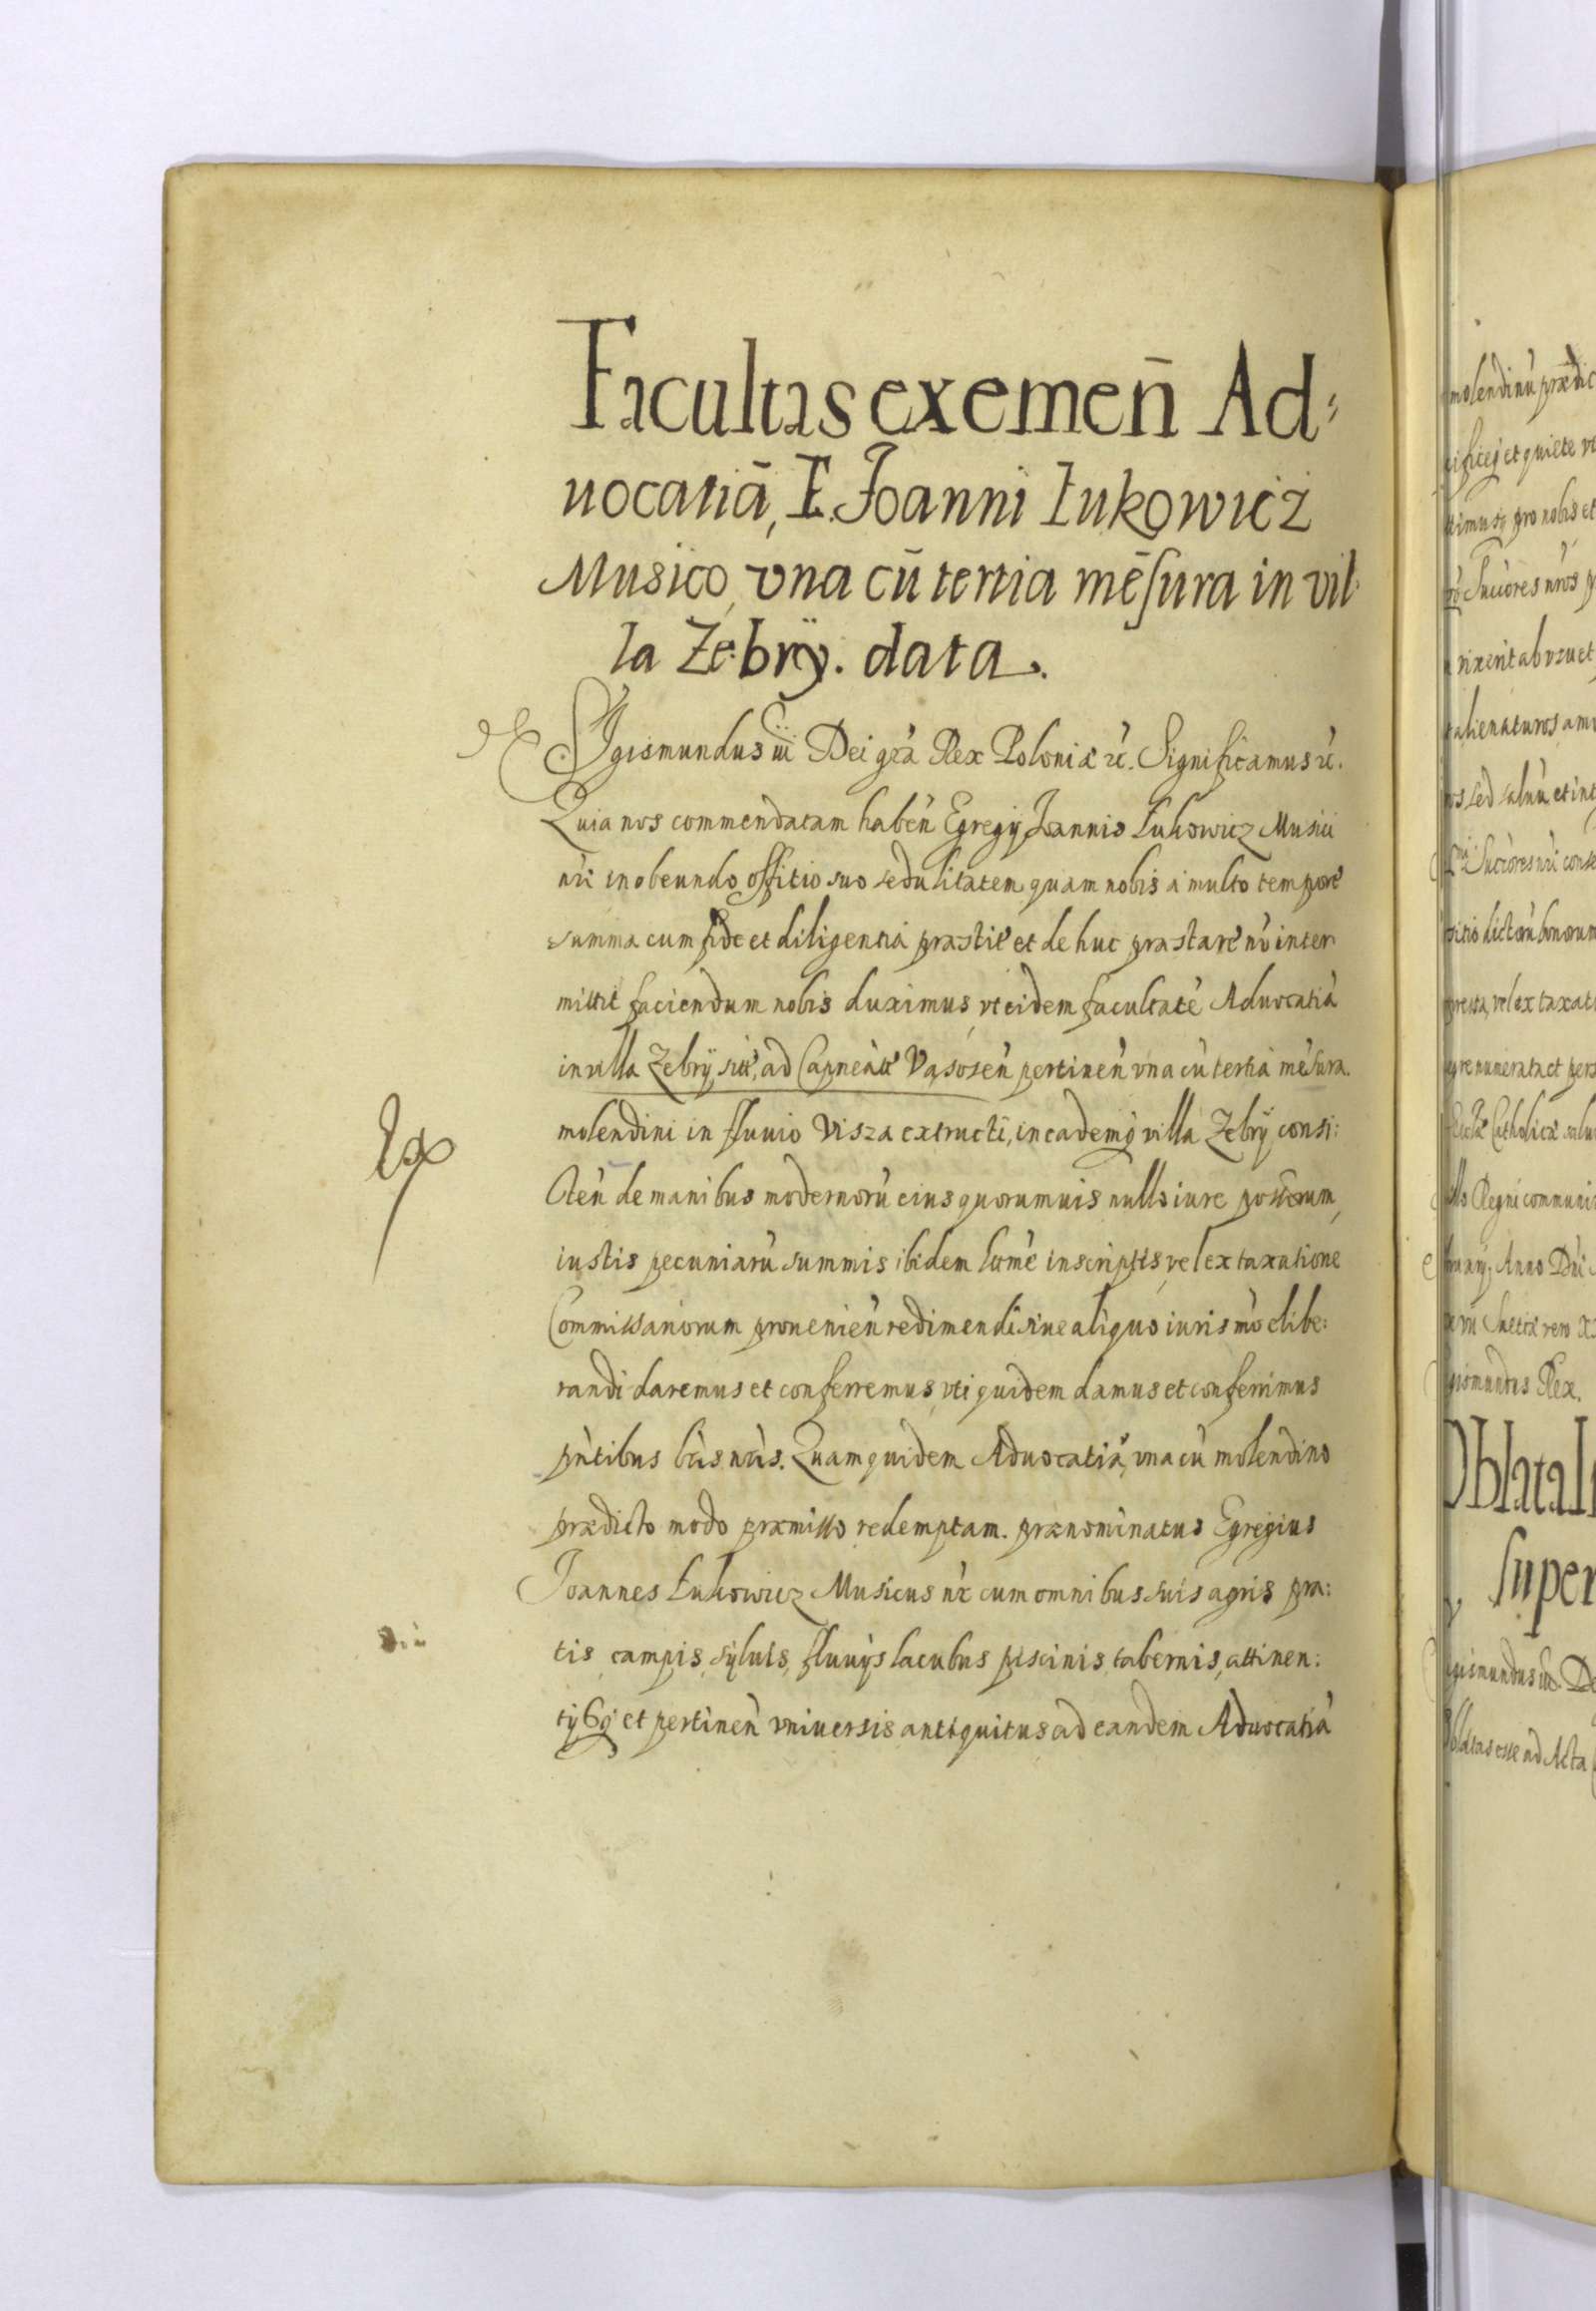 Facultas exemen̄ Ad:
uocatiā, E. Joanni Łukowicż
Musico, vna cū tertia mēsura in vil:
la Zebrÿ. data.
Sigismundus iii Dei gr̃a Rex Poloniæ ꝛc̃. Significamus ꝛc̃.
Quia nos commendatam haben̄ Egregij Joannis Łukowicz Musici
nr̃i in obeundo officio suo sedulitatem quam nobis à multo tempore
summa cum fide et diligentia præstit et de huc præstare nō inter
mittit faciendum nobis duximus, vt eidem facultatē Aduocatiā
in villa Zebrÿ, sitt̃, ad Capneatt̃ Vąsosen̄ pertinen̄ vna cū tertia mēsura
molendini in fluuio Visza extructi, in eademq̃ villa Zebrÿ consi:
sten̄ de manibus modernorū eius quorumuis nullo iure possessorum,
iustis pecuniarū summis ibidem leg̃me inscriptis, vel ex taxatione
Commissariorum prouenien̄ redimendi siue aliquo iuris mō elibe:
randi daremus et conferremus, vti quidem damus et conferimus
pn̄tibus lr̃is nr̃is. Quam quidem Aduocatiā, vna cū molendino
prædicto modo præmisso redemptam. prænominatus Egregius
Joannes Łukowicz Musicus nr̃ cum omnibus suis agris pra:
tis, campis, syluis, fluuijs lacubus piscinis, tabernis, attinen:
tijsq̃ et pertinen̄ vniuersis antiquitus ad eandem Aduocatiā
molendinū prædic
et quiete
pro nobis et
Succores nr̃os
ab vzu et
alienaturos
sed saluū et
Succores nr̃i conse
dictorū bonorum
vel ex taxat
et pers
Catholicæ
Regni communi
Anno Dn̄i
Suetiæ vero
gismundus Rex.
Oblata
super
gismundus iii De
esse ad Acta